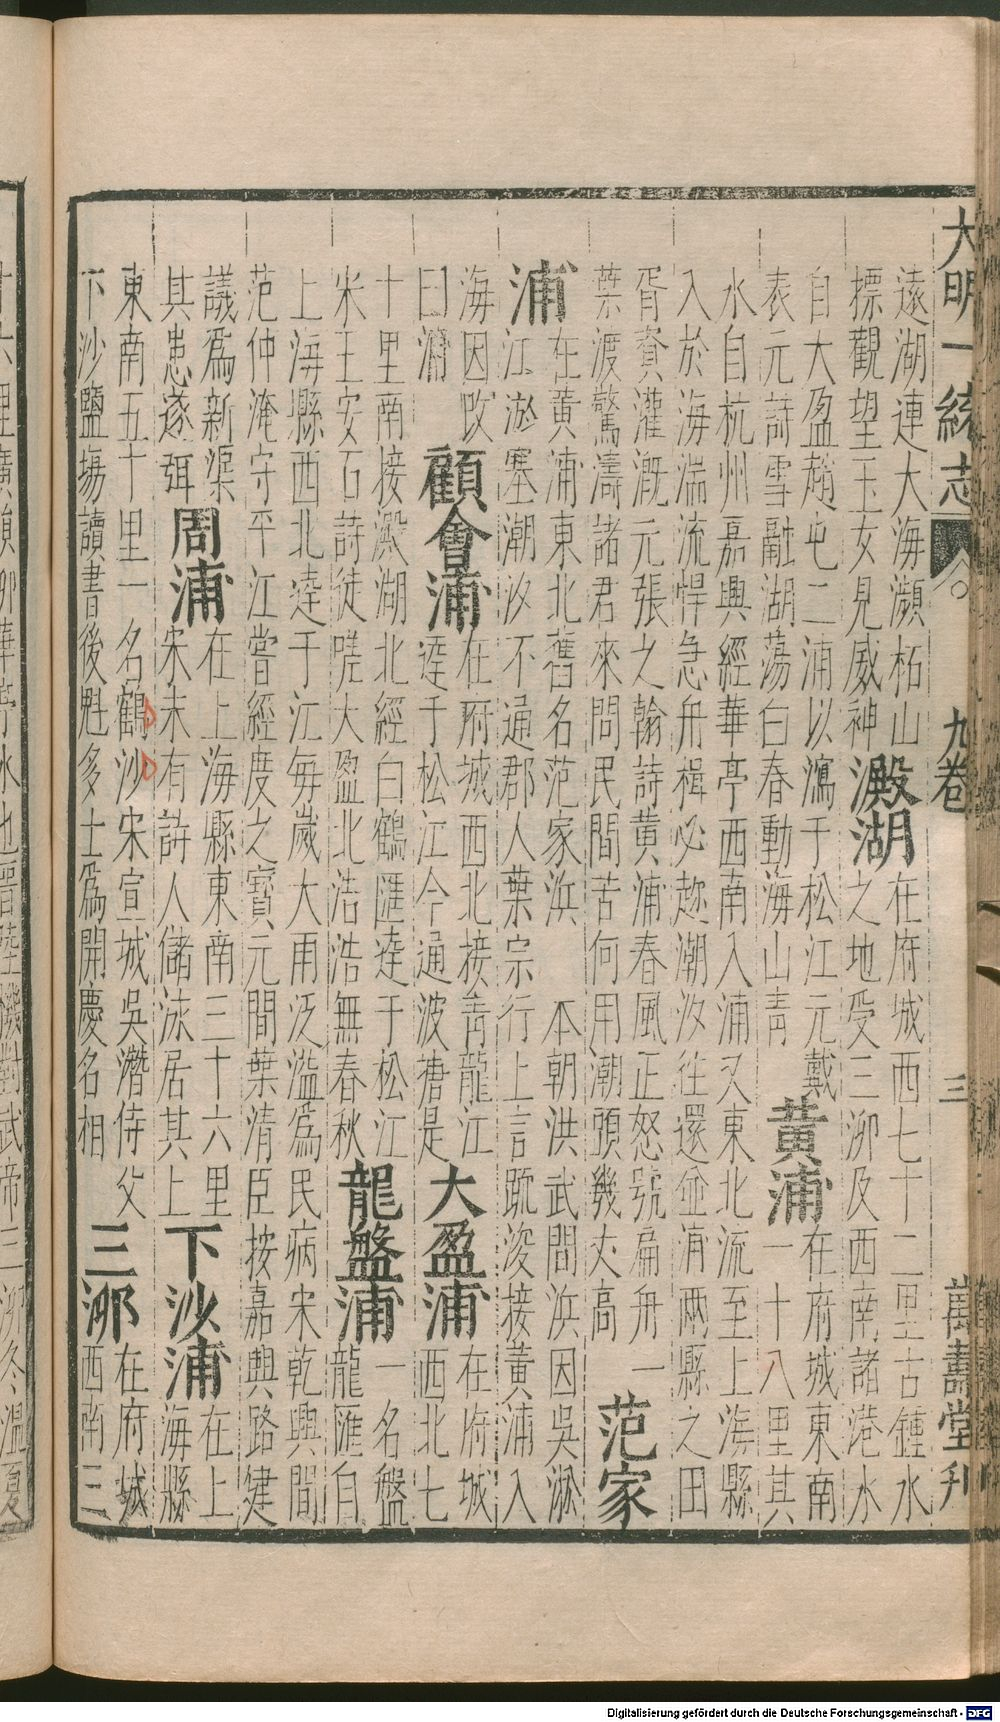 大明一統志 九卷 三 萬壽堂刋
遠湖連大海瀕柘山
標觀望玉女見威神
澱湖
在府城西七十二里古鍾水
之地受三泖及西南諸港水
自大盈趙屯二浦以瀉于松江元戴
表元詩雪融湖蕩白春動海山青
黄浦
在府城東南
一十八里其
水自杭州嘉興經華亭西南入浦又東北流至上海縣
入於海湍流悍急舟楫必趂潮汐往還並浦兩縣之田
胥資灌溉元張之翰詩黄浦春風正怒號扁舟一
葉渡驚濤諸君來問民間苦何用潮頭幾丈高
范家
浦
在黄浦東北舊名范家浜 本朝洪武間浜因吳淞
江淤塞潮汐不通郡人葉宗行上言䟽浚接黄浦入
海因攺
曰浦
顧會浦
在府城西北接青龍江
逹于松江今通波塘是
大盈浦
在府城
西北七
十里南接澱湖北經白鶴匯逹于松江
宋王安石詩徒嗟大盈北浩浩無春秋
龍盤浦
一名盤
龍匯自
上海縣西北逹于江每歲大雨泛濫爲民病宋乾興間
范仲淹守平江嘗經度之寳元間葉清臣按嘉興路建
議爲新渠
其患遂弭
周浦
在上海縣東南三十六里
宋末有詩人儲泳居其上
下沙浦
在上
海縣
東南五十里一名鶴沙宋宣城吳潛侍父
下沙鹽塲讀書後魁多士爲開慶名相
三泖
在府城
西南三
水也晉陸機對武帝三泖冬温夏
Digitalisierung gefördert durch die Deutsche Forschungsgemeinschaft - DFG